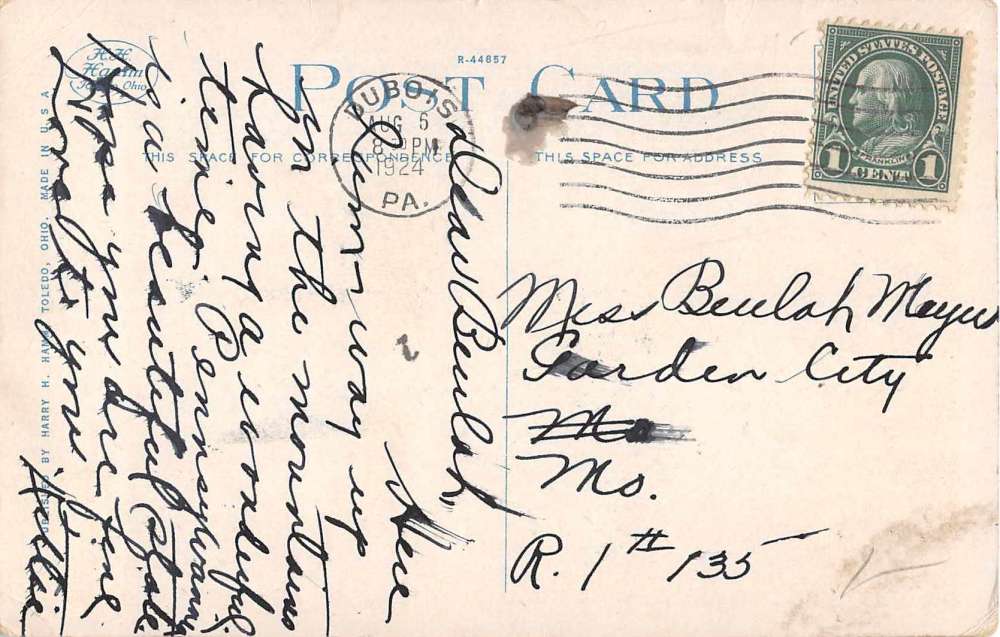 R-44857
POST CARD
THIS SPACE FOR CORRESPONDENCE
THIS SPACE FOR ADDRESS
DUBOIS
AUG 5
8 PM
1924
PA.
UNITED STATES POSTAGE
FRANKLIN
1 CENT 1
H.H.
Hamm
Toledo, Ohio
PUBLISHED BY HARRY H. HAMM, TOLEDO, OHIO. MADE IN U.S.A.
Dear Beulah,
Here
I am way up
in the mountains
Having a wonderful
time. Pennsylvania
is a beautiful state
Hope you are fine
Lots of love
Hattie
Miss Beulah Meyer
Garden City
Mo
Mo.
R. 1 # 135